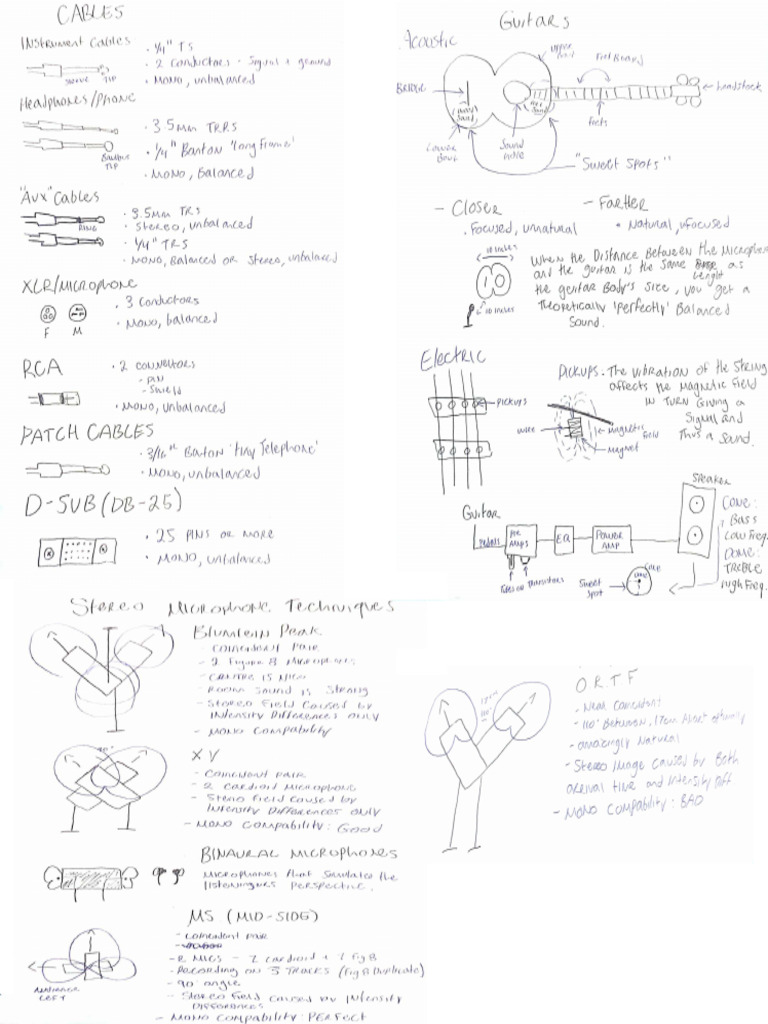 CABLES
Instrument Cables
• 1/4" TS
• 2 conductors - Signal + ground
• Mono, unbalanced
TIP
Headphones/Phone
• 3.5mm TRRS
• 1/4" Bantom 'Long Frame'
• Mono, Balanced
TIP
"Aux" Cables
• 3.5mm TRS
• Stereo, unbalanced
• 1/4" TRS
• Mono, Balanced or Stereo, unbalanced
RING
XLR/Microphone
• 3 conductors
• Mono, balanced
F M
RCA
• 2 connectors
- PIN
- Shield
• Mono, unbalanced
PATCH CABLES
• 3/16" Bantom 'tiny Telephone'
• Mono, unbalanced
D-SUB (DB-25)
• 25 PINS OR MORE
• MONO, unbalanced
Guitars
Acoustic
Upper Bout
Fretboard
BRIDGE
headstock
Lower Bout
Sound Hole
Frets
"Sweet Spots"
- Closer
• Focused, unnatural
- Farther
• Natural, unfocused
10 inches
10 inches
When the Distance Between the Microphone
and the guitar is the Same Lenght as
the guitar Body's Size, you get a
Theoretically 'perfectly' Balanced
Sound.
Electric
PICKUPS
PICKUPS - The vibration of the String
affects the Magnetic field
IN TURN Giving a
Signal and
Thus a Sound.
wire
magnetic field
magnet
Guitar
Pedals
PRE AMPS
EQ
POWER AMP
Speaker
Transistors
CONE:
Bass
Low Freq.
DOME:
TREBLE
High Freq.
Sweet Spot
Cone
Stereo Microphone Techniques
Blumlein Pair
- Coincident pair
- 2 Figure 8 Microphones
- Room Sound is Strong
- Stereo Field Caused by
Intensity Differences ONLY
- Mono Compatibility
XY
- Coincident pair
- 2 Cardioid Microphone
- Stereo Field Caused by
Intensity Differences ONLY
- Mono Compability: Good
90°
BINAURAL MICROPHONES
Microphones that Simulates the
perspective.
MS (MID-SIDE)
- Coincident pair
- 2 MICS - 1 cardioid + 1 Fig 8
- Recording on 3 TRACKS (Fig 8 Duplicate)
- 90° angle
- Stereo Field Caused by Intensity
Differences
- Mono Compability: PERFECT
LEFT
ORTF
- Near Coincident
- 110° Between, 17cm Apart
- amazingly Natural
- Stereo Image Caused by Both
arrival time and intensity Diff
- Mono Compability: BAD
17cm
110°